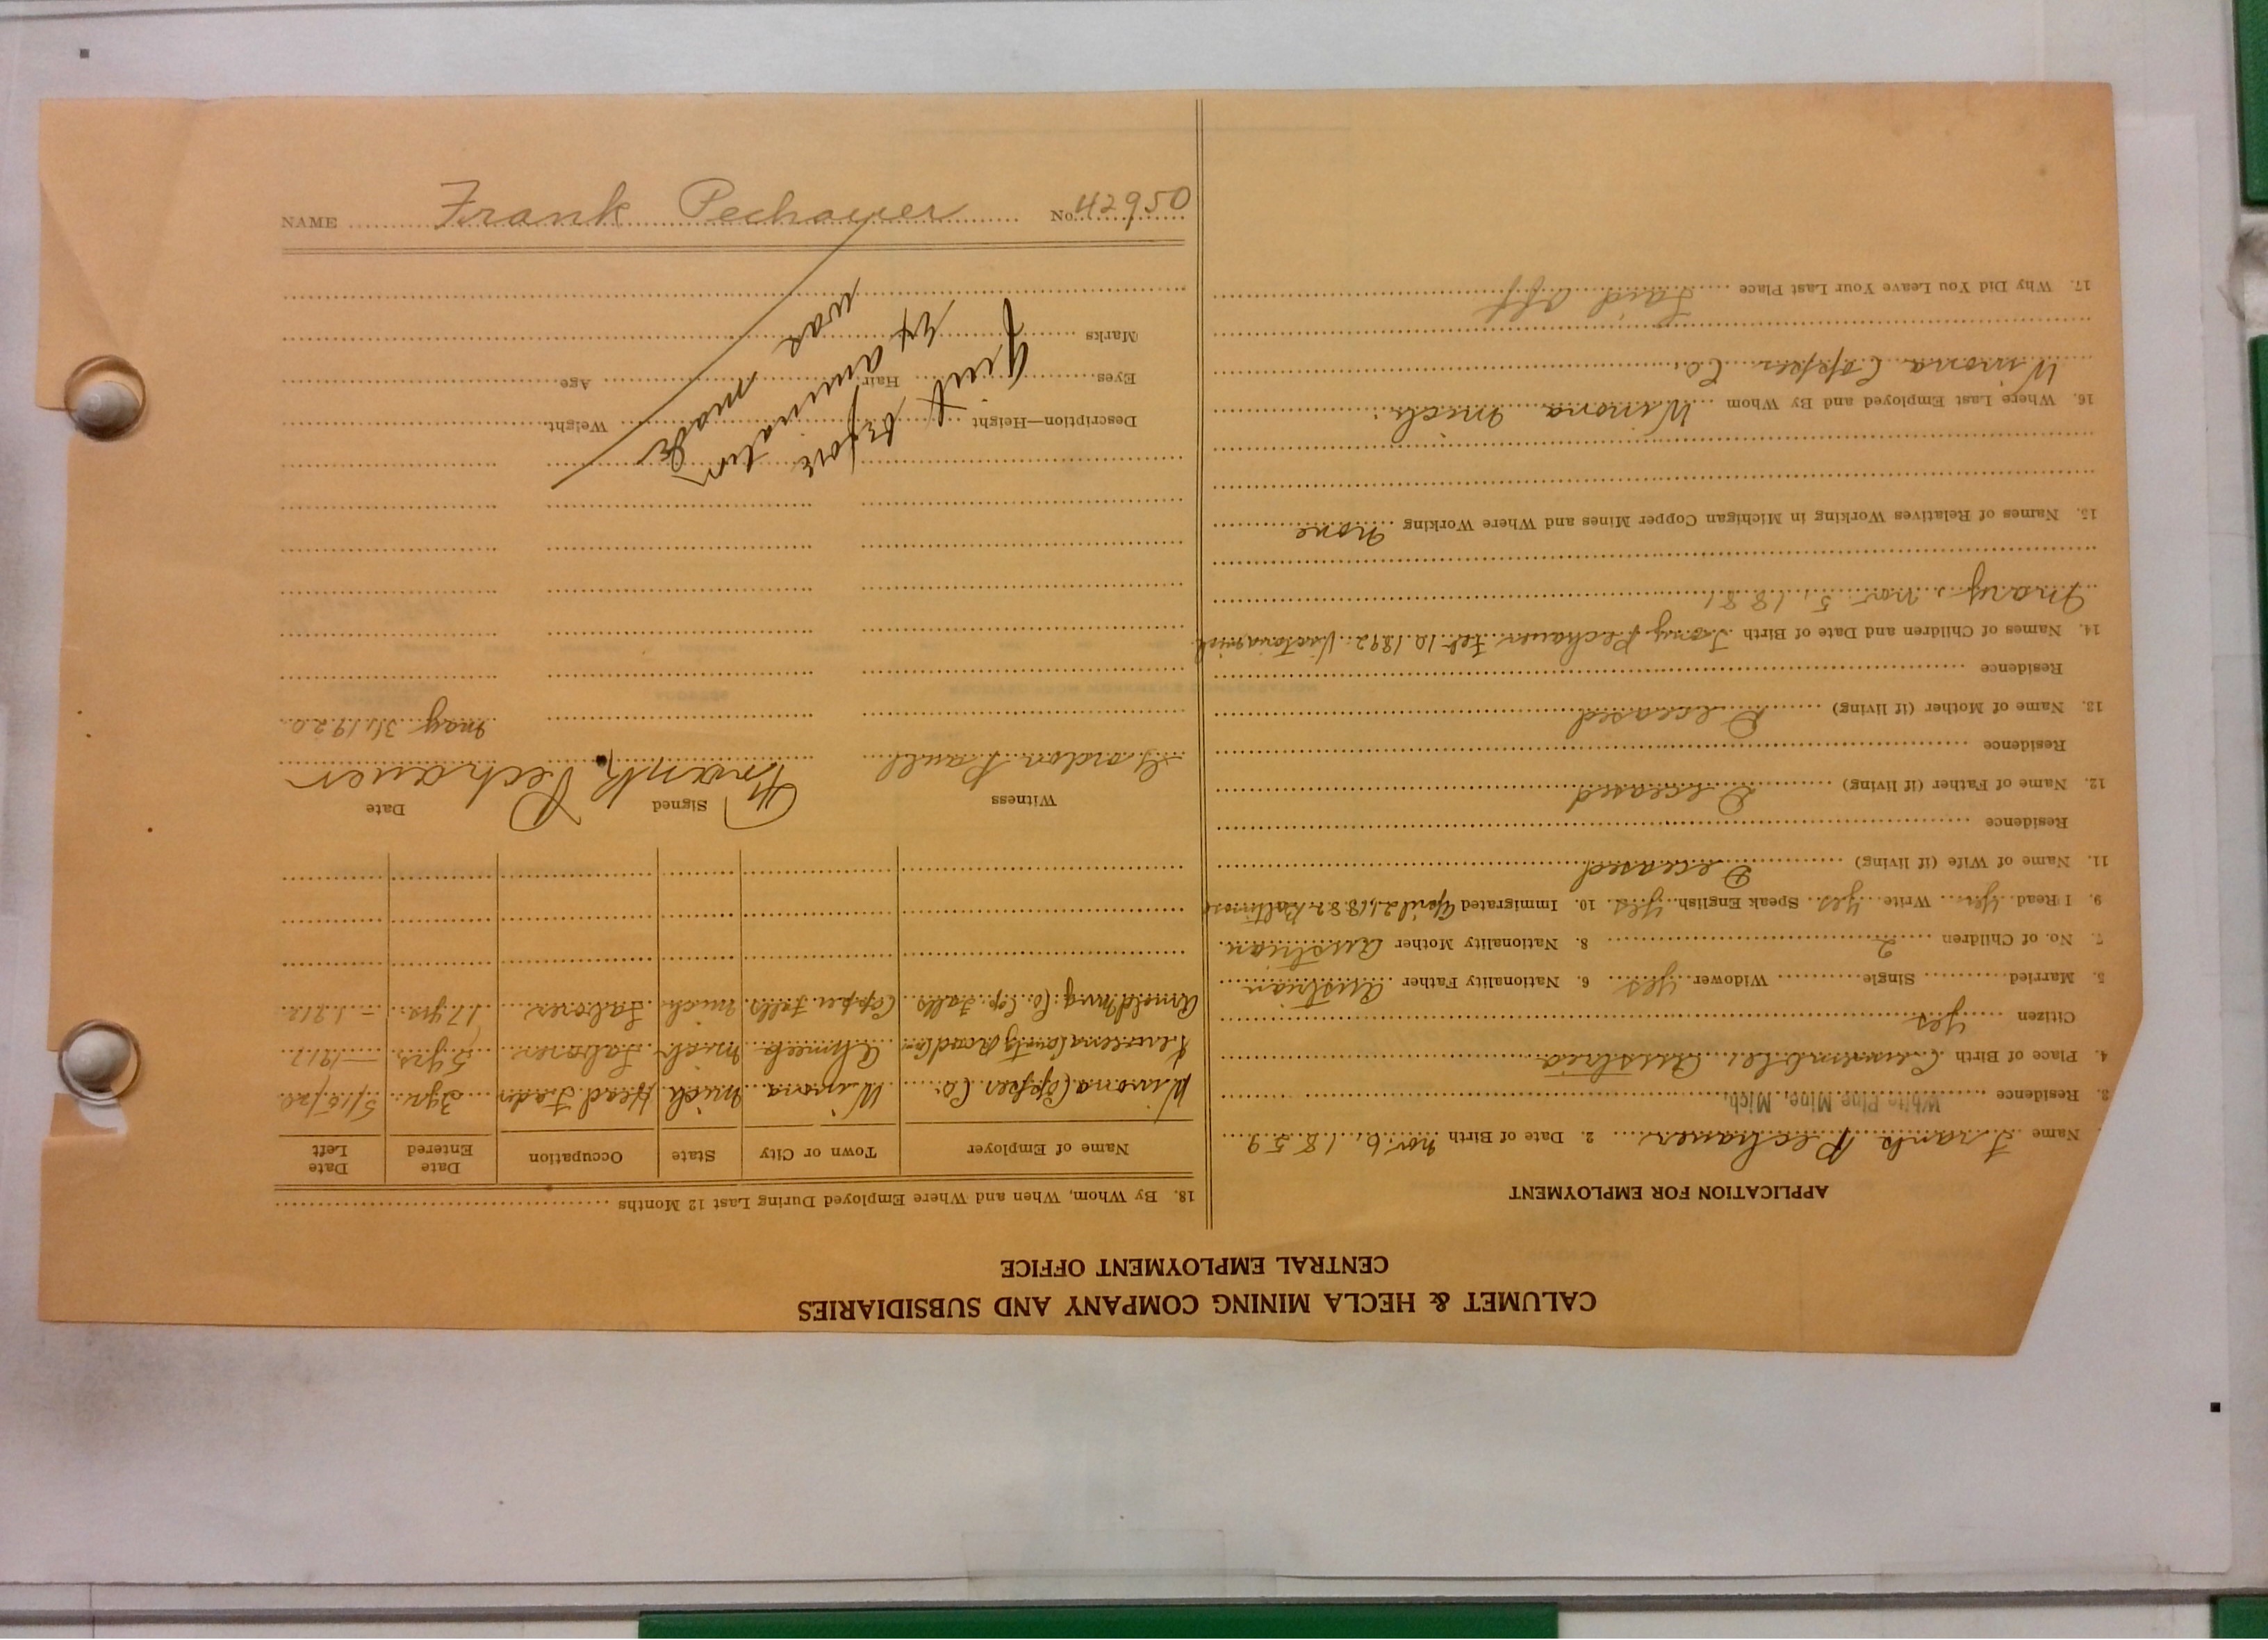 CALUMET & HECLA MINING COMPANY AND SUBSIDIARIES
CENTRAL EMPLOYMENT OFFICE
APPLICATION FOR EMPLOYMENT
Name Frank Pechauer 2. Date of Birth Nov. 6, 1859
3. Residence White Pine Mine, Mich.
4. Place of Birth Austria
Citizen Yes
5. Married Single Widower Yes 6. Nationality Father Austrian
7. No. of Children 2 8. Nationality Mother Austrian
9. I Read Yes Write Yes Speak English Yes 10. Immigrated April 21, 1882 Baltimore
11. Name of Wife (if living) Deceased
Residence
12. Name of Father (if living) Deceased
Residence
13. Name of Mother (if living) Deceased
Residence
14. Names of Children and Date of Birth Pechauer Feb. 10 1892 Victoria Mich
Mary, Nov. 5, 1881
15. Names of Relatives Working in Michigan Copper Mines and Where Working None
16. Where Last Employed and By Whom Winona Mich.
Winona Copper Co.
17. Why Did You Leave Your Last Place Laid off
18. By Whom, When and Where Employed During Last 12 Months
Name of Employer Town or City State Occupation Date Entered Date Left
Winona Copper Co. Winona Mich Head 3 yrs 5/16/20
County Road Ahmeek Mich Laborer 5 yrs – 1917
Arnold Mng. Co. Cop. Falls Copper Falls Mich Laborer 17 yrs. – 1912
Witness Signed Date
Gordon Frank Pechauer May 31, 1920
Description—Height Weight
Eyes Hair Age
Marks
Quit before
examination
was made
NAME Frank Pechauer No. 42950